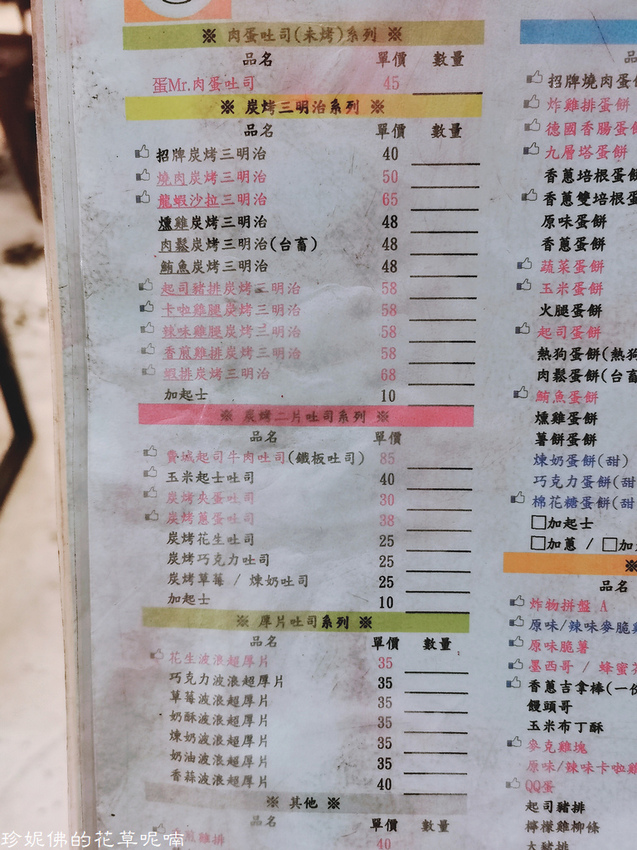 ※ 肉蛋吐司(未烤)系列 ※
品名 單價 數量
蛋Mr.肉蛋吐司 45
※ 炭烤三明治系列 ※
品名 單價 數量
招牌炭烤三明治 40
燒肉炭烤三明治 50
龍蝦沙拉三明治 65
燻雞炭烤三明治 48
肉鬆炭烤三明治(台畜) 48
鮪魚炭烤三明治 48
起司豬排炭烤三明治 58
卡啦雞腿炭烤三明治 58
辣味雞腿炭烤三明治 58
香煎雞排炭烤三明治 58
蝦排炭烤三明治 68
加起士 10
※ 炭烤二片吐司系列 ※
品名 單價
費城起司牛肉吐司(鐵板吐司) 85
玉米起士吐司 40
炭烤夾蛋吐司 30
炭烤蔥蛋吐司 38
炭烤花生吐司 25
炭烤巧克力吐司 25
炭烤草莓 / 煉奶吐司 25
加起士 10
※ 厚片吐司系列 ※
品名 單價 數量
花生波浪超厚片 35
巧克力波浪超厚片 35
草莓波浪超厚片 35
奶酥波浪超厚片 35
煉奶波浪超厚片 35
奶油波浪超厚片 35
香蒜波浪超厚片 40
※ 其他 ※
品名 單價 數量
煎雞排 40
品
招牌燒肉蛋
炸雞排蛋餅
德國香腸蛋餅
九層塔蛋餅
香蔥培根蛋餅
香蔥雙培根蛋
原味蛋餅
香蔥蛋餅
蔬菜蛋餅
玉米蛋餅
火腿蛋餅
起司蛋餅
熱狗蛋餅(熱狗
肉鬆蛋餅(台畜
鮪魚蛋餅
燻雞蛋餅
薯餅蛋餅
煉奶蛋餅(甜)
巧克力蛋餅(甜
棉花糖蛋餅(甜
□加起士
□加蔥 / □加
※
品名
炸物拼盤 A
原味/辣味麥脆雞
原味脆薯
墨西哥 / 蜂蜜
香蔥吉拿棒(一份
饅頭哥
玉米布丁酥
麥克雞塊
原味/辣味卡啦雞
QQ蛋
起司豬排
檸檬雞柳條
大豬排
珍妮佛的花草呢喃